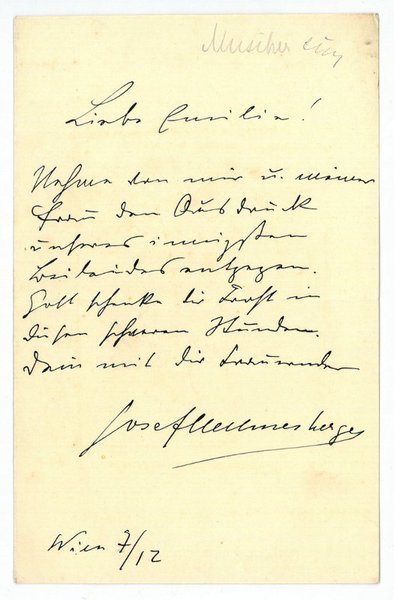 Musiker
Liebe Emilie!
Nehme von mir u. meiner
Frau den Ausdruck
unseres innigsten
Beileides entgegen.
Gott schenke dir Trost in
diesen schweren Stunden.
Dein mit dir trauernder
Josef Hellmesberger
Wien 7/12